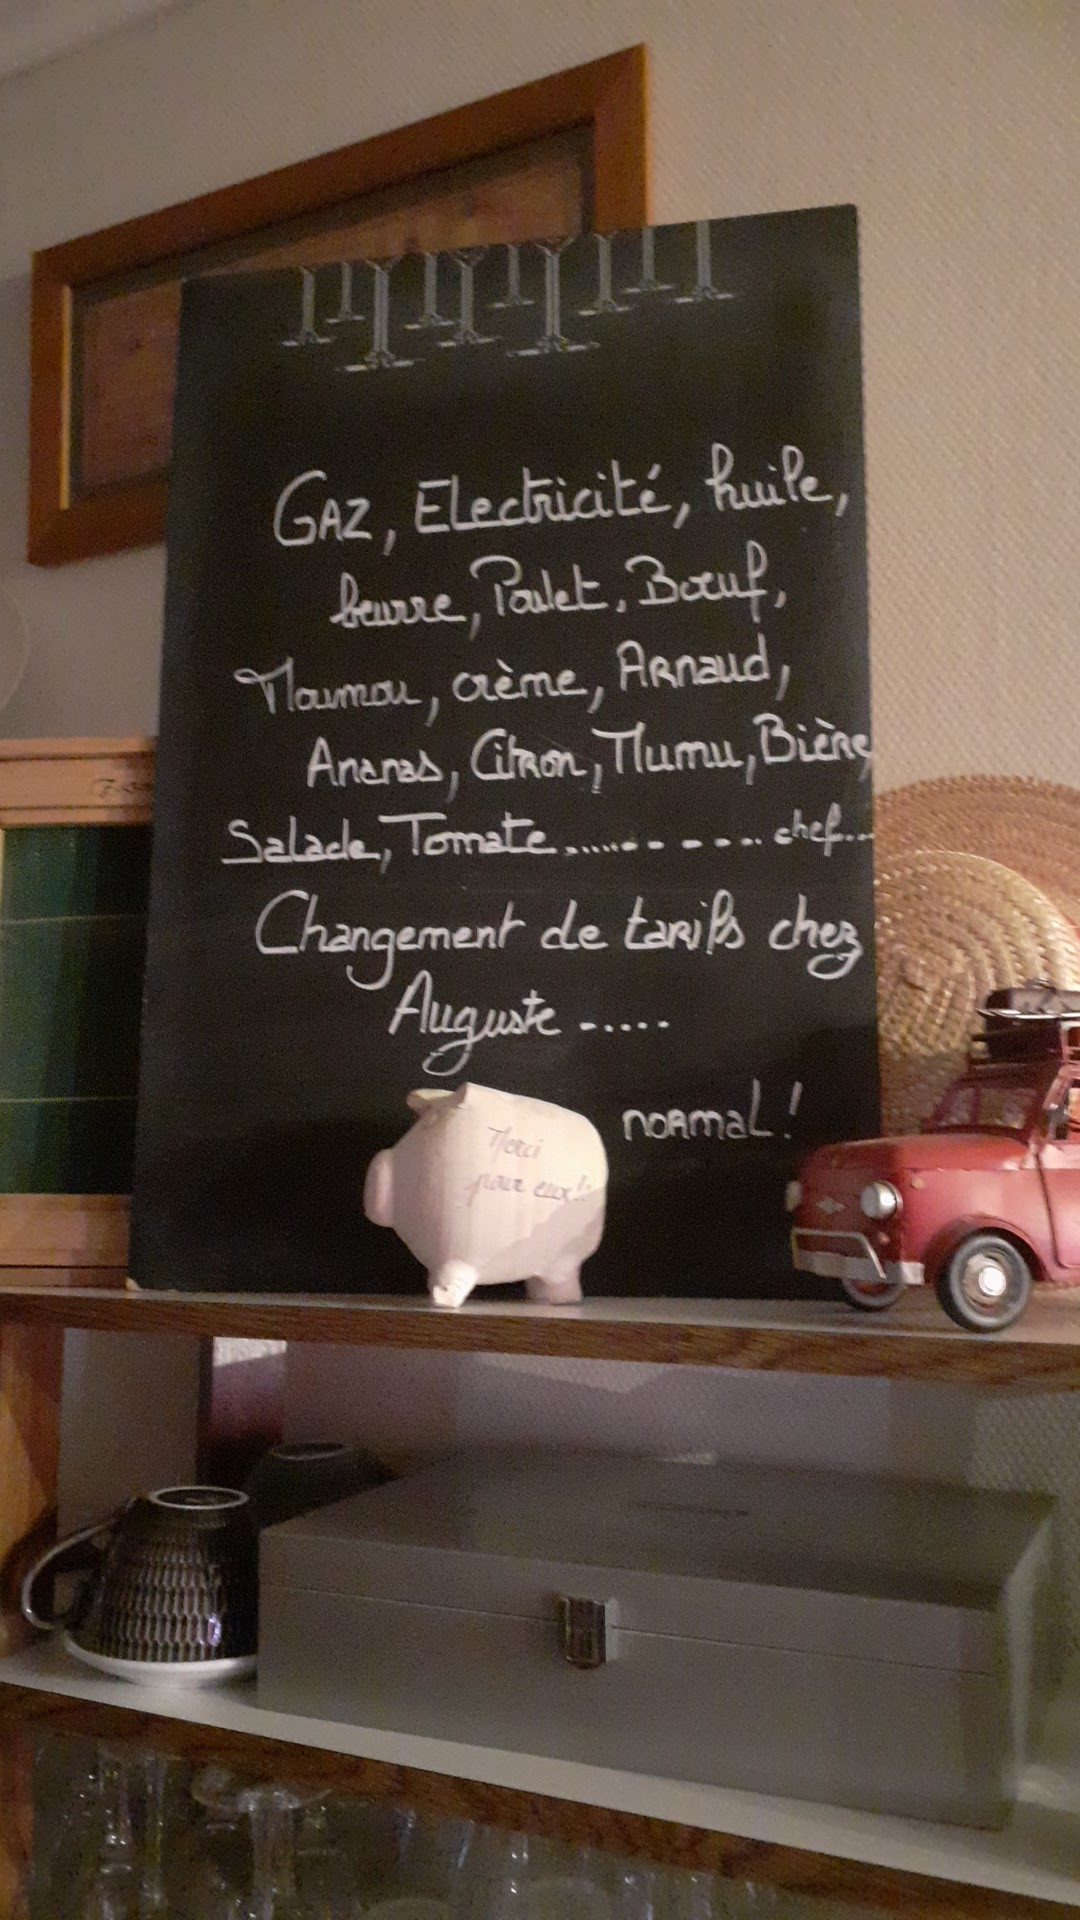 GAZ, Electricité, huile,
beurre, Poulet, Boeuf,
Moumou, crème, ARnaud,
Ananas, Citron, Mumu, Bière,
Salade, Tomate ............ chef...
Changement de tarifs chez
Auguste .....
normal !
Merci
pour eux!!